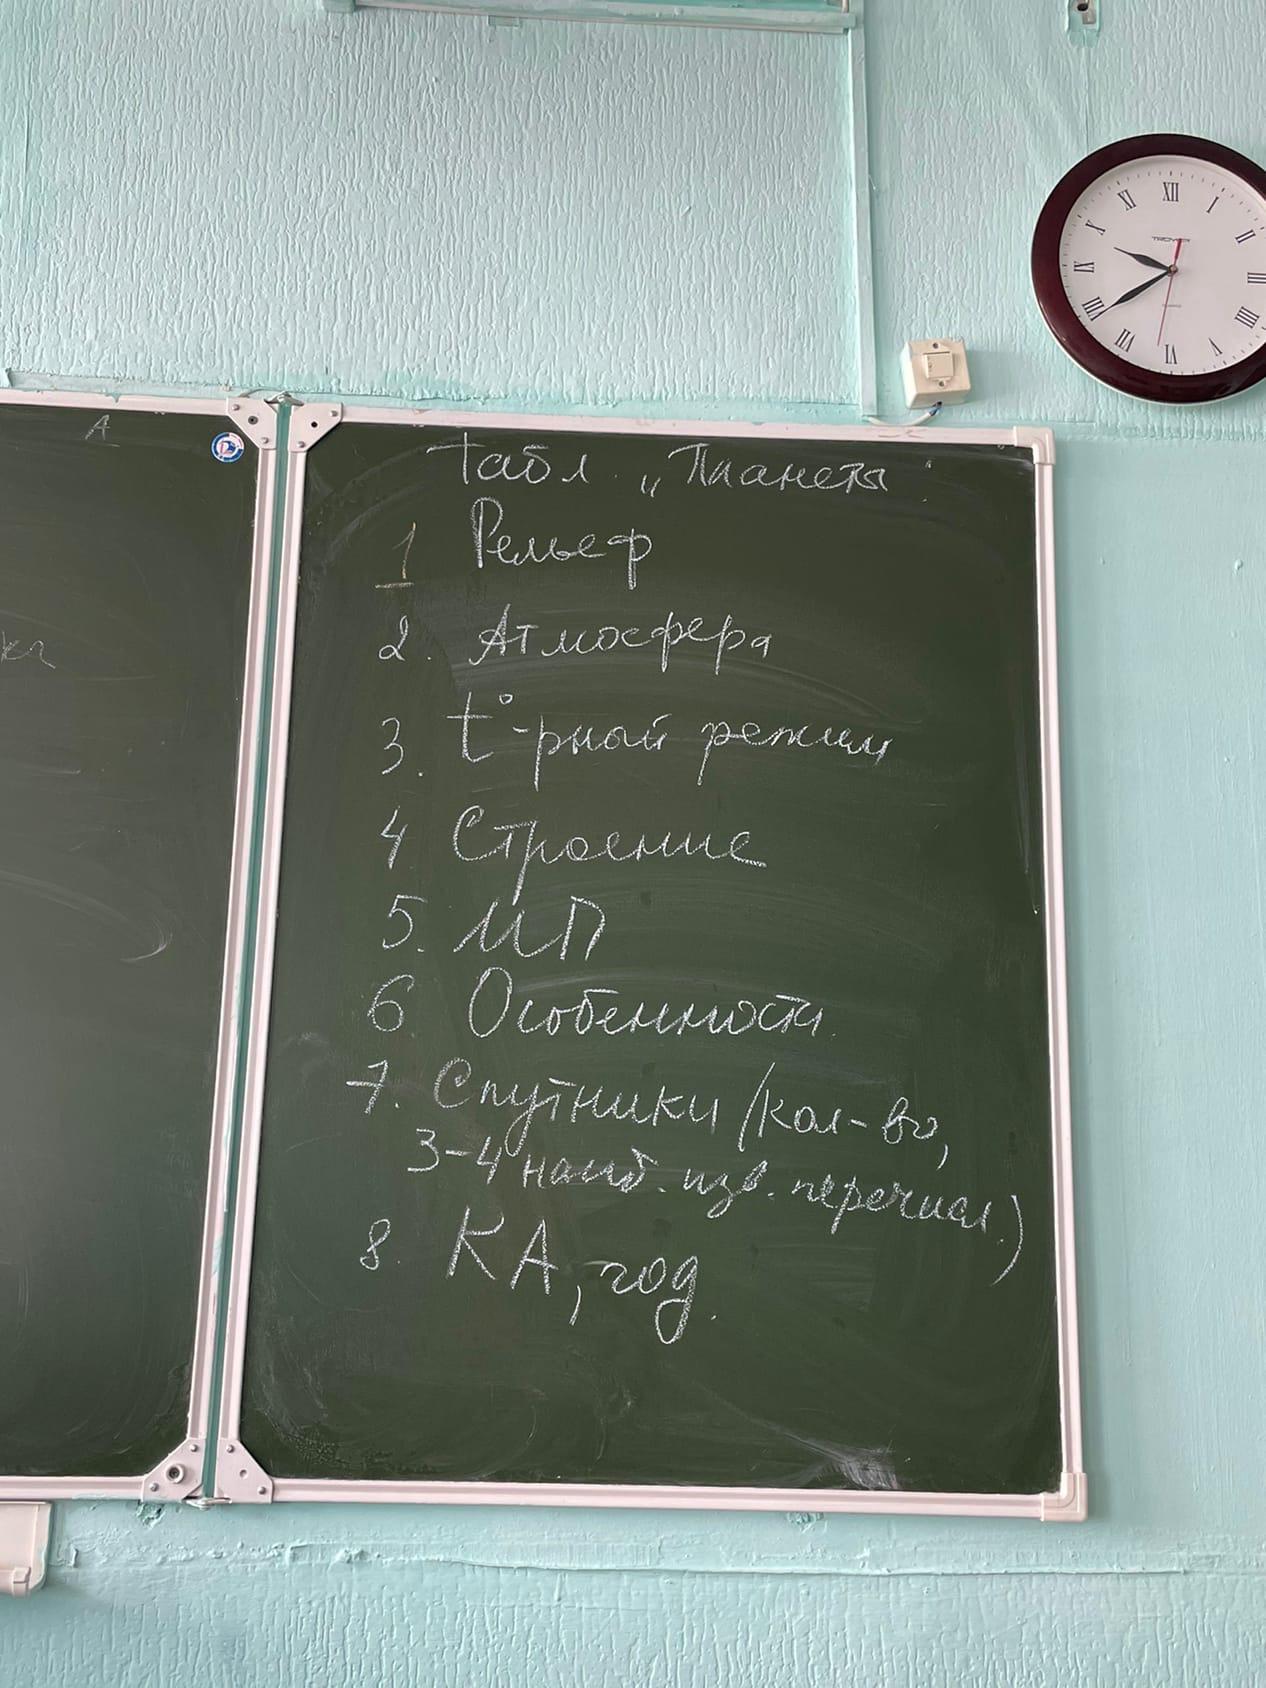 А
кг
Табл. „Планеты"
1 Рельеф
2. Атмосфера
3. t°-рный режим
4 Строение
5. МП
6 Особенности
7. Спутники (кол-во,
3-4 наиб. изв. перечисл.)
8. КА, год.
XII I II III IIII V VI VII VIII IX X XI
TROYKA